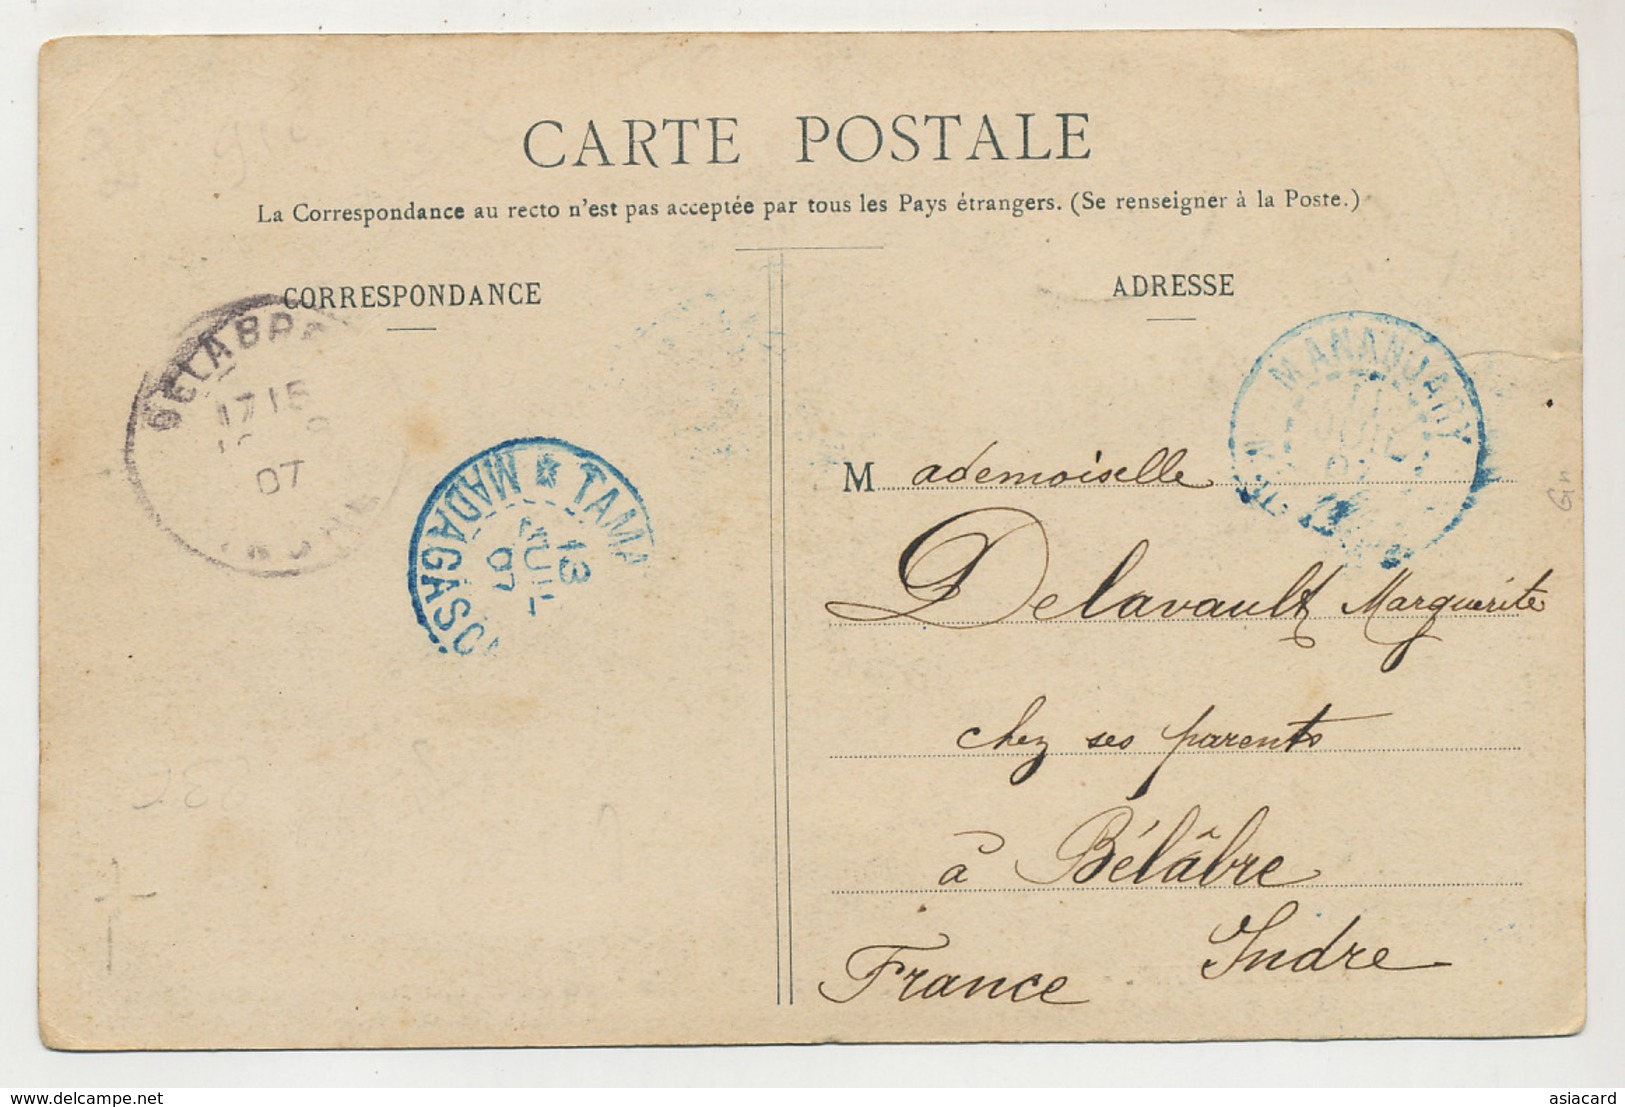 CARTE POSTALE
La Correspondance au recto n'est pas acceptée par tous les Pays étrangers. (Se renseigner à la Poste.)
CORRESPONDANCE
ADRESSE
BELABRE
1715
07
INDRE
TAMA
13
JUIL
07
MADAGASCA
MANANJARY
JUIL
07
Mademoiselle
Delavault Marguerite
chez ses parents
à Bélâbre
Indre
France
delcampe.net
asiacard